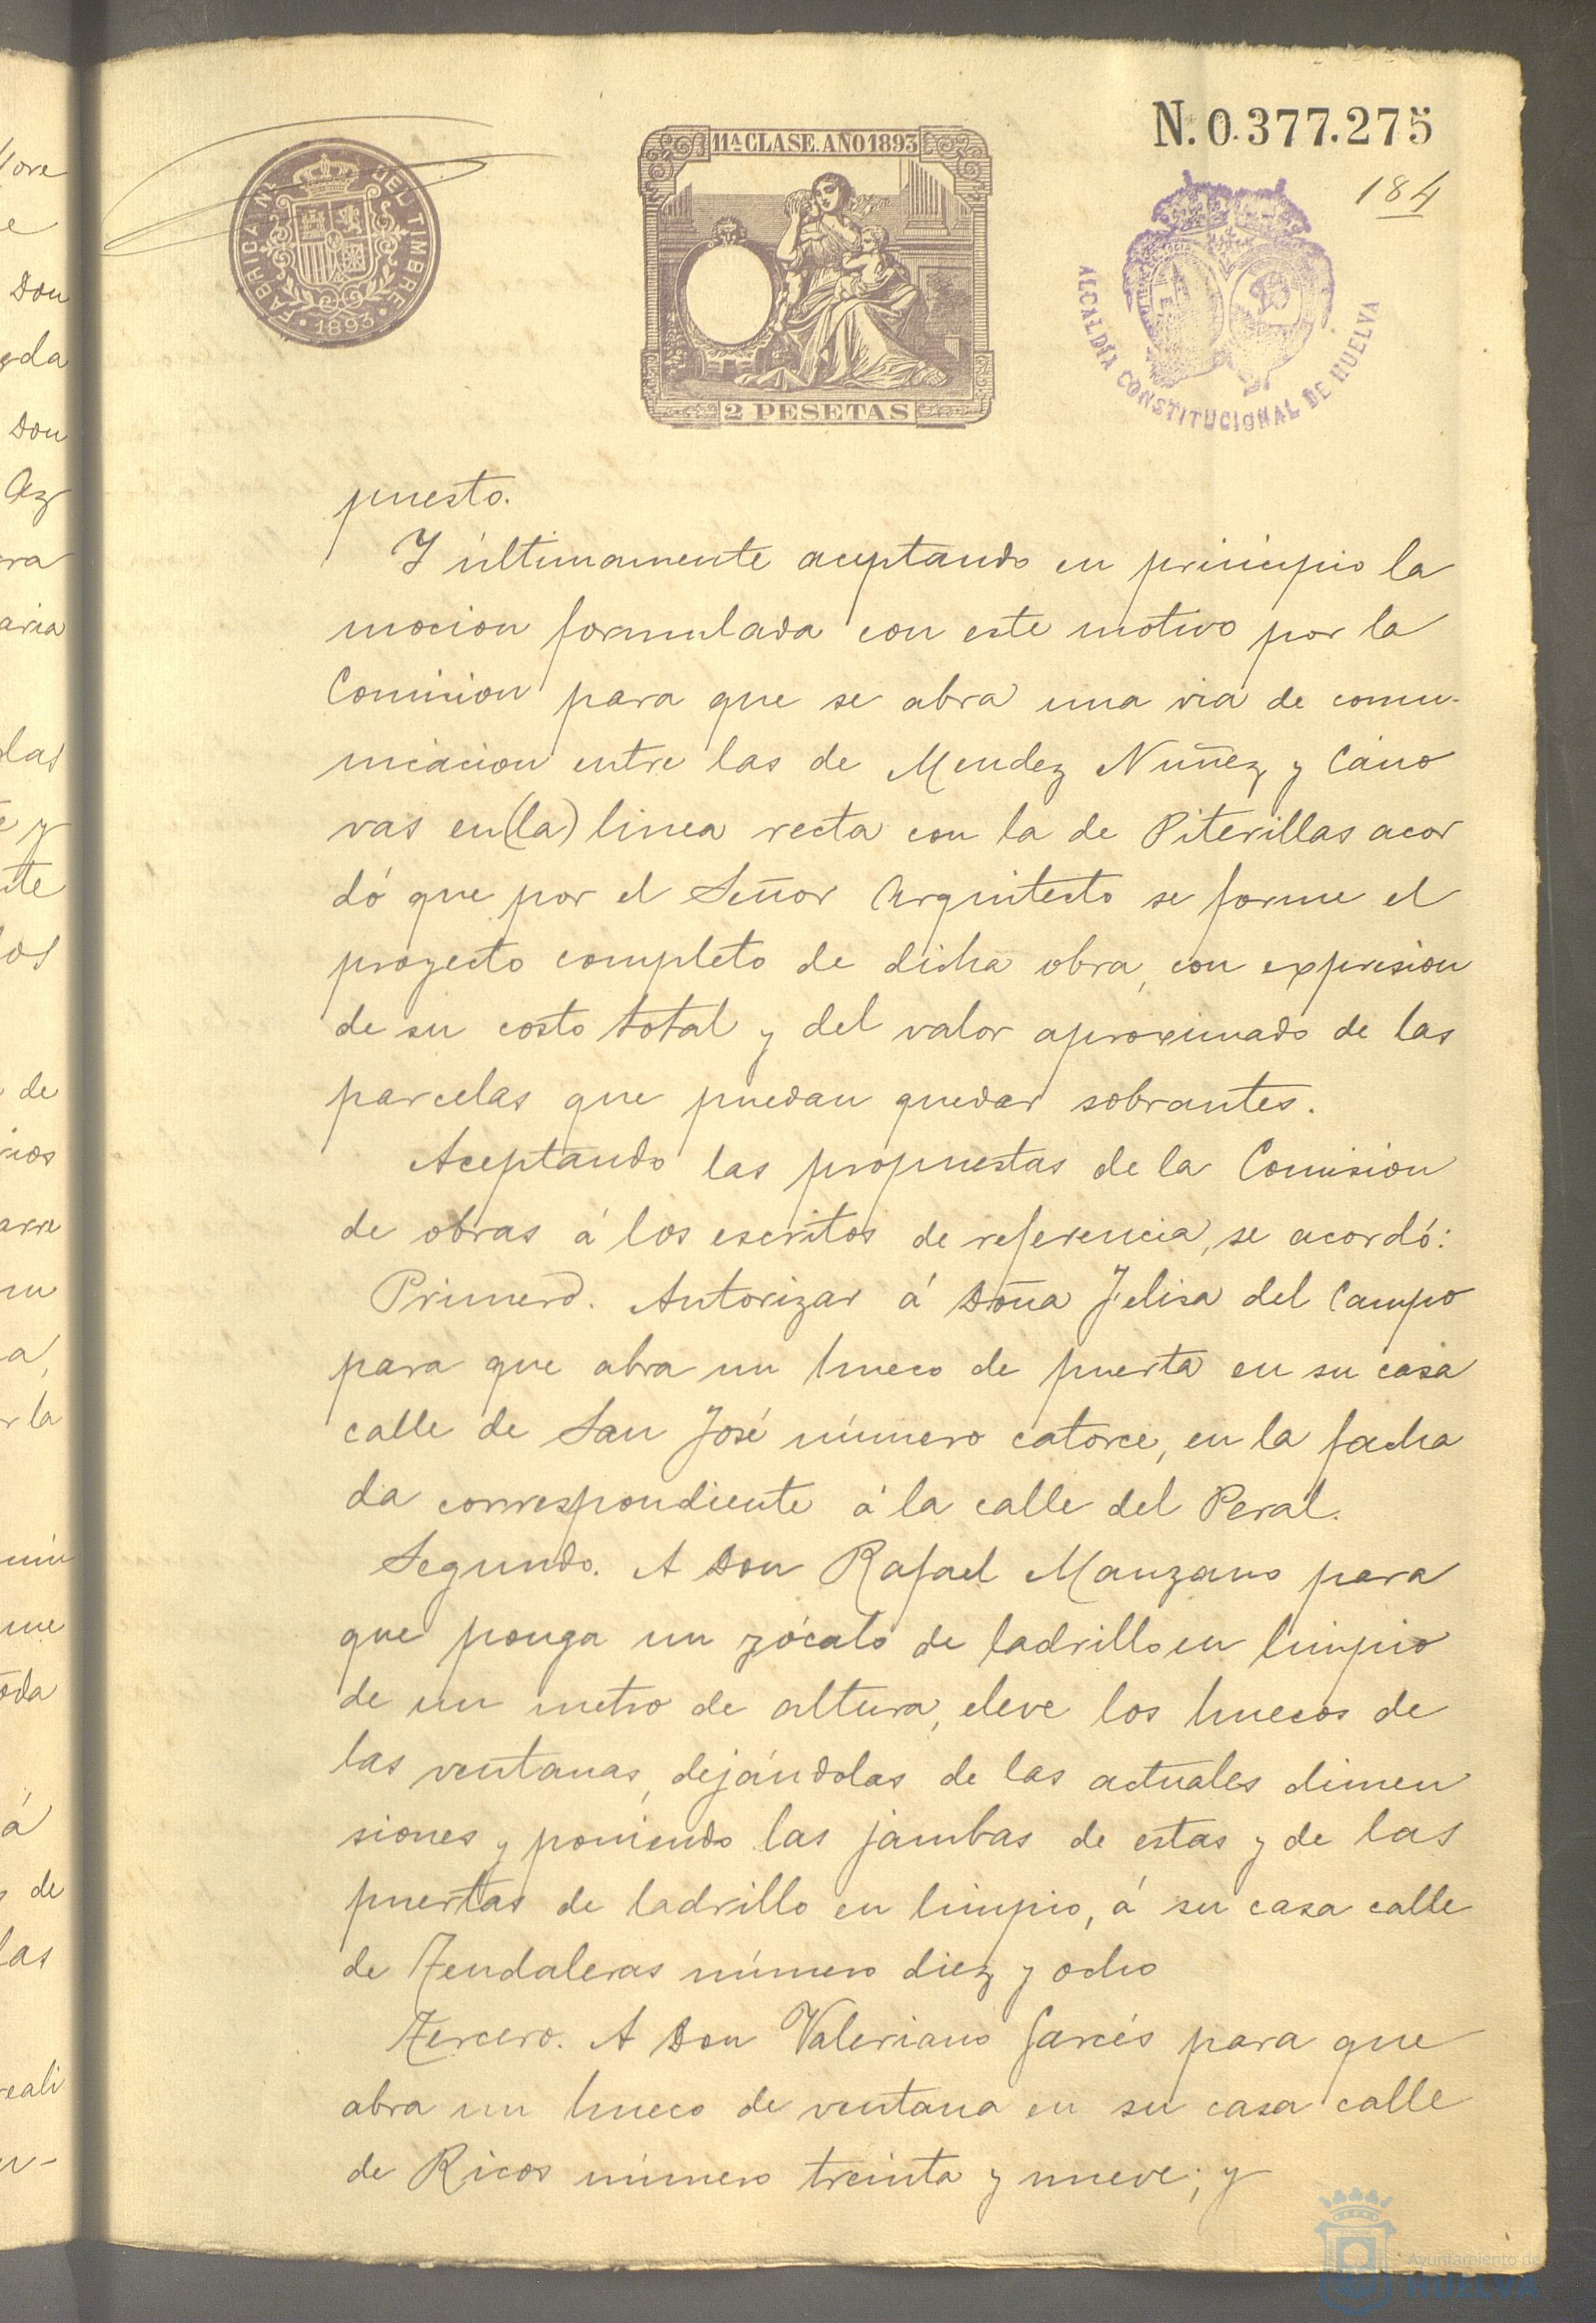 N. 0.377.275
184
11ª CLASE. AÑO 1893
2 PESETAS
FÁBRICA NAL DEL TIMBRE
1893
ALCALDÍA CONSTITUCIONAL DE HUELVA
puesto.
Y últimamente aceptando en principio la
mocion formulada con este motivo por la
Comision para que se abra una via de comu-
nicacion entre las de Mendez Nuñez y Cáno
vas en (la) linea recta con la de Piterillas acor
dó que por el Señor Arquitecto se forme el
proyecto completo de dicha obra, con expresion
de su costo total y del valor aproximado de las
parcelas que puedan quedar sobrantes.
Aceptando las propuestas de la Comision
de obras á los escritos de referencia, se acordó:
Primero. Autorizar á Doña Felisa del Campo
para que abra un hueco de puerta en su casa
calle de San José número catorce, en la facha
da correspondiente á la calle del Peral.
Segundo. A Don Rafael Manzano para
que ponga un zócalo de ladrillo en limpio
de un metro de altura, eleve los huecos de
las ventanas, dejándolas de las actuales dimen
siones y poniendo las jambas de estas y de las
puertas de ladrillo en limpio, á su casa calle
de Tendaleras número diez y ocho
Tercero. A Don Valeriano Garcés para que
abra un hueco de ventana en su casa calle
de Ricos número treinta y nueve; y
Ayuntamiento de
HUELVA